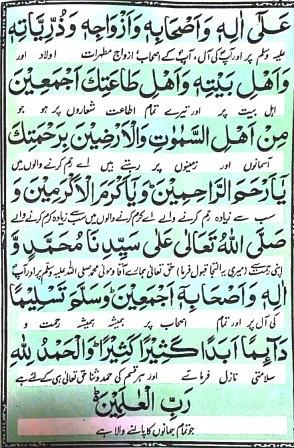 عَلٰٓى اٰلِهٖ وَاَصْحَابِهٖ وَاَزْوَاجِهٖ وَذُرِّيَّاتِهٖ
علیہ وسلم پر اور آپ کی آل، آپ کے اصحاب ازواج مطہرات اولاد اور
وَاَهْلِ بَيْتِهٖ وَاَهْلِ طَاعَتِكَ اَجْمَعِيْنَ
اہل بیت پر اور تیرے تمام اطاعت شعاروں پر ہو جو
مِنْ اَهْلِ السَّمٰوٰتِ وَالْاَرْضِيْنَ بِرَحْمَتِكَ
آسمانوں اور زمینوں پر رہتے ہیں اے رحم کرنے والوں میں
يَآ اَرْحَمَ الرَّاحِمِيْنَ وَيَآ اَكْرَمَ الْاَكْرَمِيْنَ وَ
سب سے زیادہ رحم کرنے والے اے کرم والوں میں سے زیادہ کرم کرنے والے
صَلَّى اللّٰهُ تَعَالٰى عَلٰى سَيِّدِنَا مُحَمَّدٍ وَّ
اپنی رحمت سے (میری یہ التجا قبول فرما) حق تعالیٰ ہمارے آقا و مولیٰ محمد صلی اللہ علیہ وسلم پر اور آپ
اٰلِهٖ وَاَصْحَابِهٖٓ اَجْمَعِيْنَ وَسَلَّمَ تَسْلِيْمًا
کی آل پر اور تمام اصحاب پر ہمیشہ ہمیشہ رحمت و
دَآئِمًا اَبَدًا كَثِيْرًا كَثِيْرًا وَالْحَمْدُ لِلّٰهِ
سلامتی نازل فرمائے اور ہر قسم کی حمد و ثنا حق تعالیٰ ہی کے لئے ہے
رَبِّ الْعٰلَمِيْنَ
جو تمام جہانوں کا پالنے والا ہے